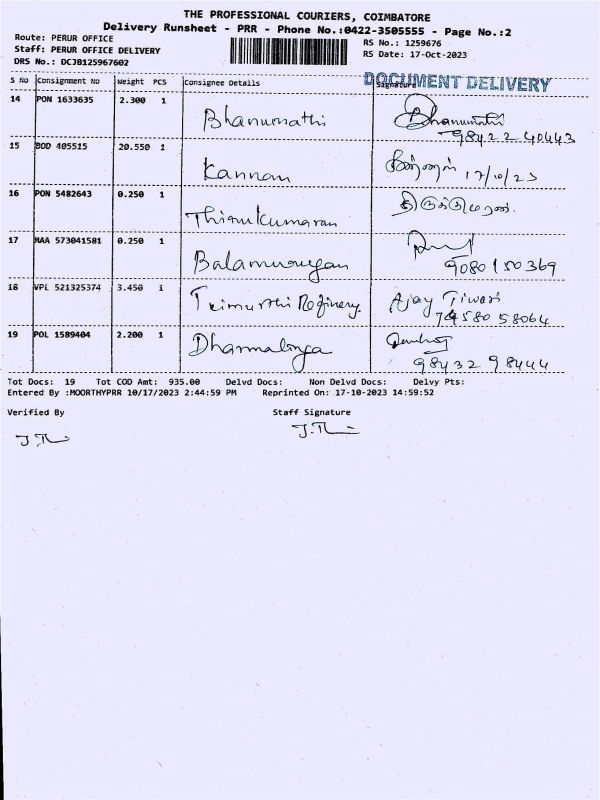 THE PROFESSIONAL COURIERS, COIMBATORE
Delivery Runsheet - PRR - Phone No.:0422-3505555 - Page No.:2
Route: PERUR OFFICE
RS No.: 1259676
Staff: PERUR OFFICE DELIVERY
RS Date: 17-Oct-2023
DRS No.: DCJB125967602
DOCUMENT DELIVERY
S No Consignment No Weight PCS Consignee Details Signature
14 PON 1633635 2.300 1 Bhanumathi Bhanumathi
98422 40443
15 BOD 405515 20.550 1 Kannan கண்ணன் 17/10/23
16 PON 5482643 0.250 1 Thirukumaran திருக்குமரன்.
17 MAA 573041581 0.250 1 Balamurugan
9080150369
18 VPL 521325374 3.450 1 Trimurthi Refinery. Ajay Tiwari
74580 58064
19 POL 1589404 2.200 1 Dharmalinga
98432 98444
Tot Docs: 19 Tot COD Amt: 935.00 Delvd Docs: Non Delvd Docs: Delvy Pts:
Entered By :MOORTHYPRR 10/17/2023 2:44:59 PM Reprinted On: 17-10-2023 14:59:52
Verified By Staff Signature